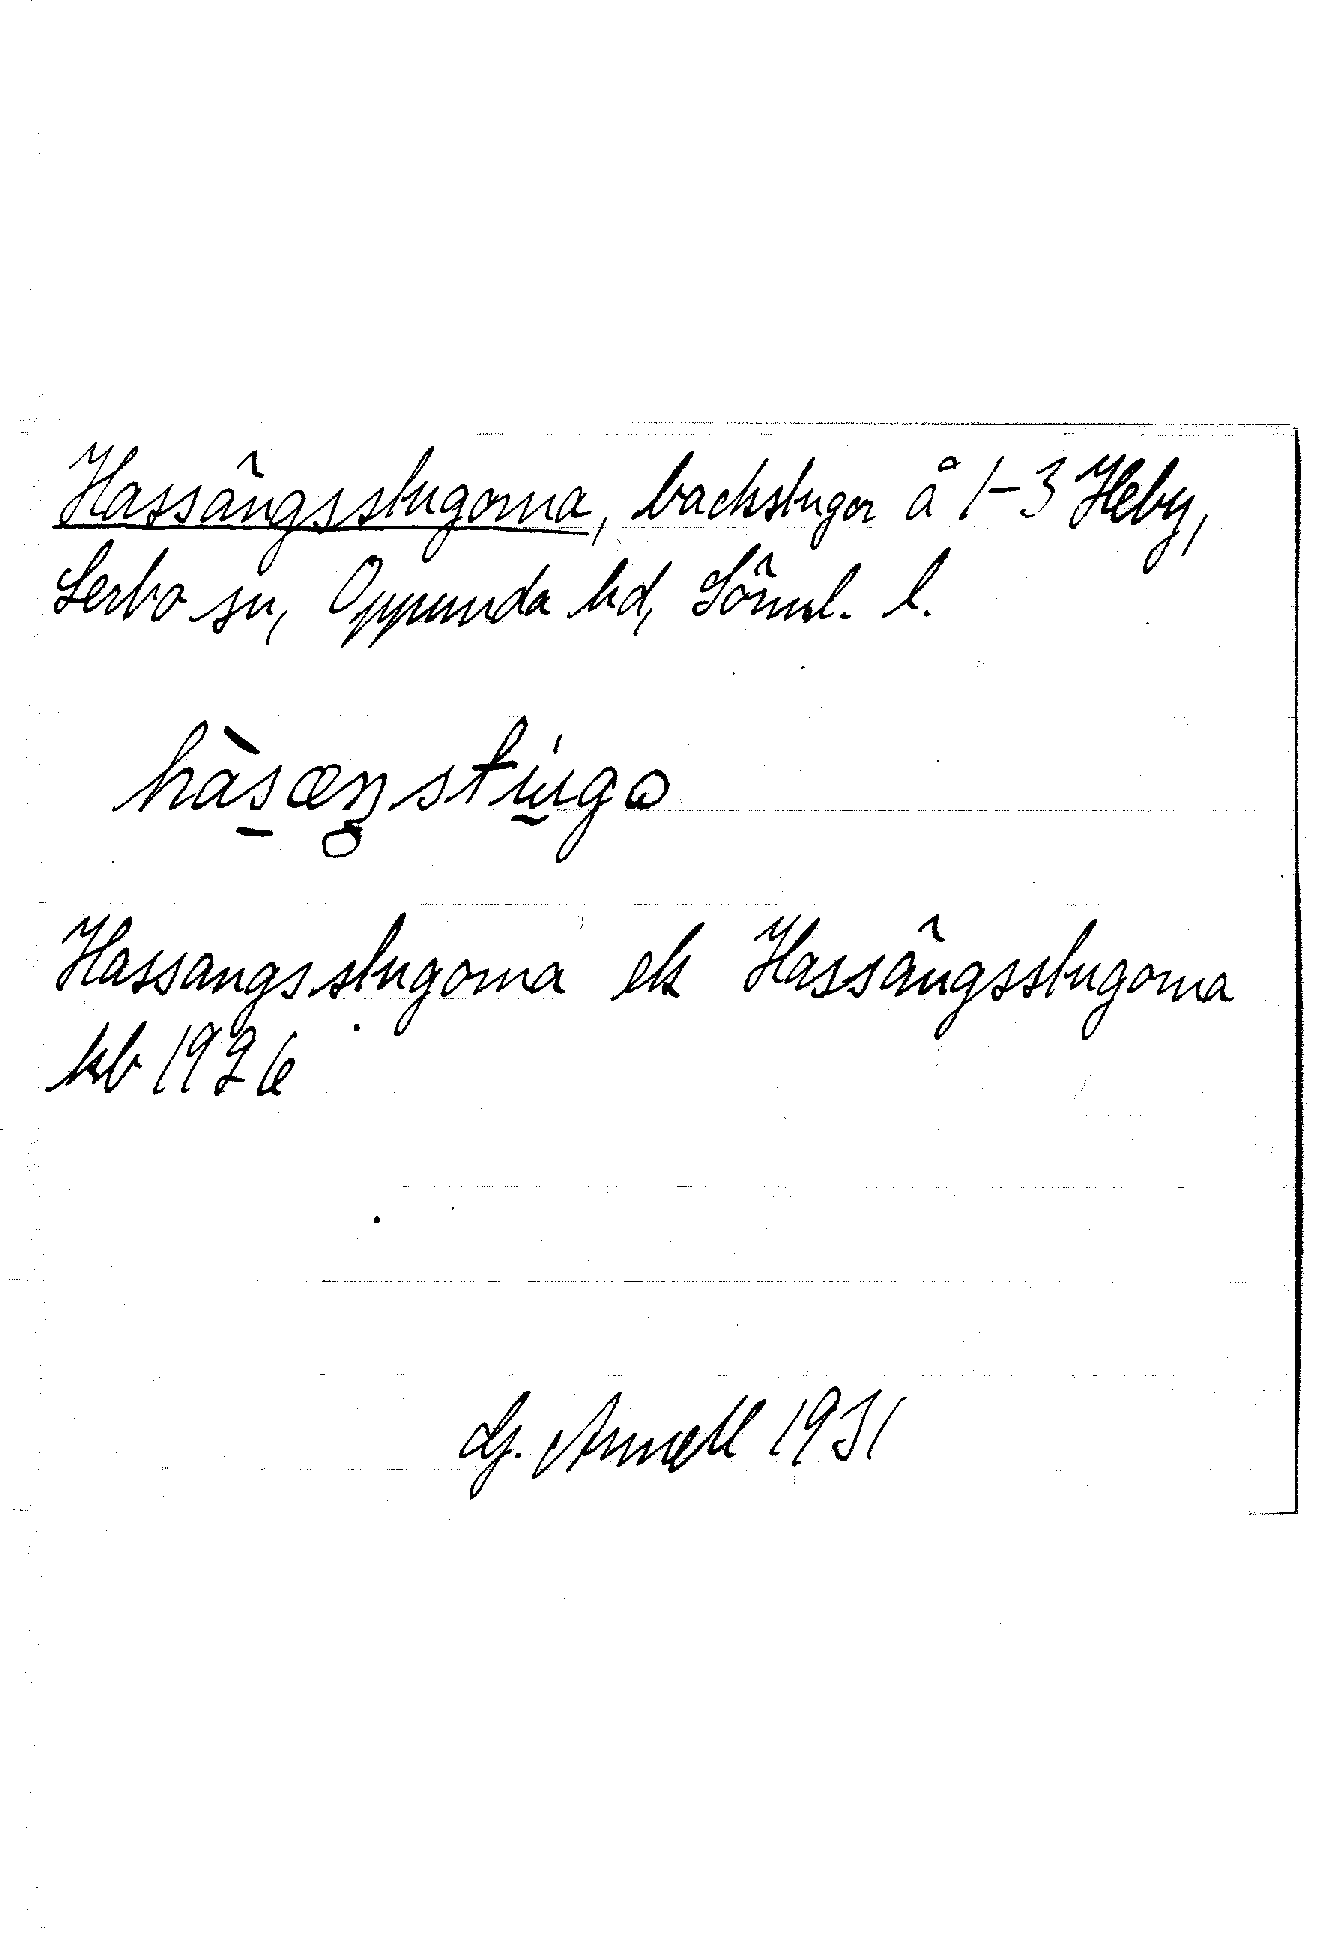 Hassängsstugorna, backstugor å 1-3 Heby,
Lerbo sn, Oppunda hd, Sörml. l.
hàsæŋstuga
Hassangsstugorna ek Hassängsstugorna
kb 1926
G. Annell 1931